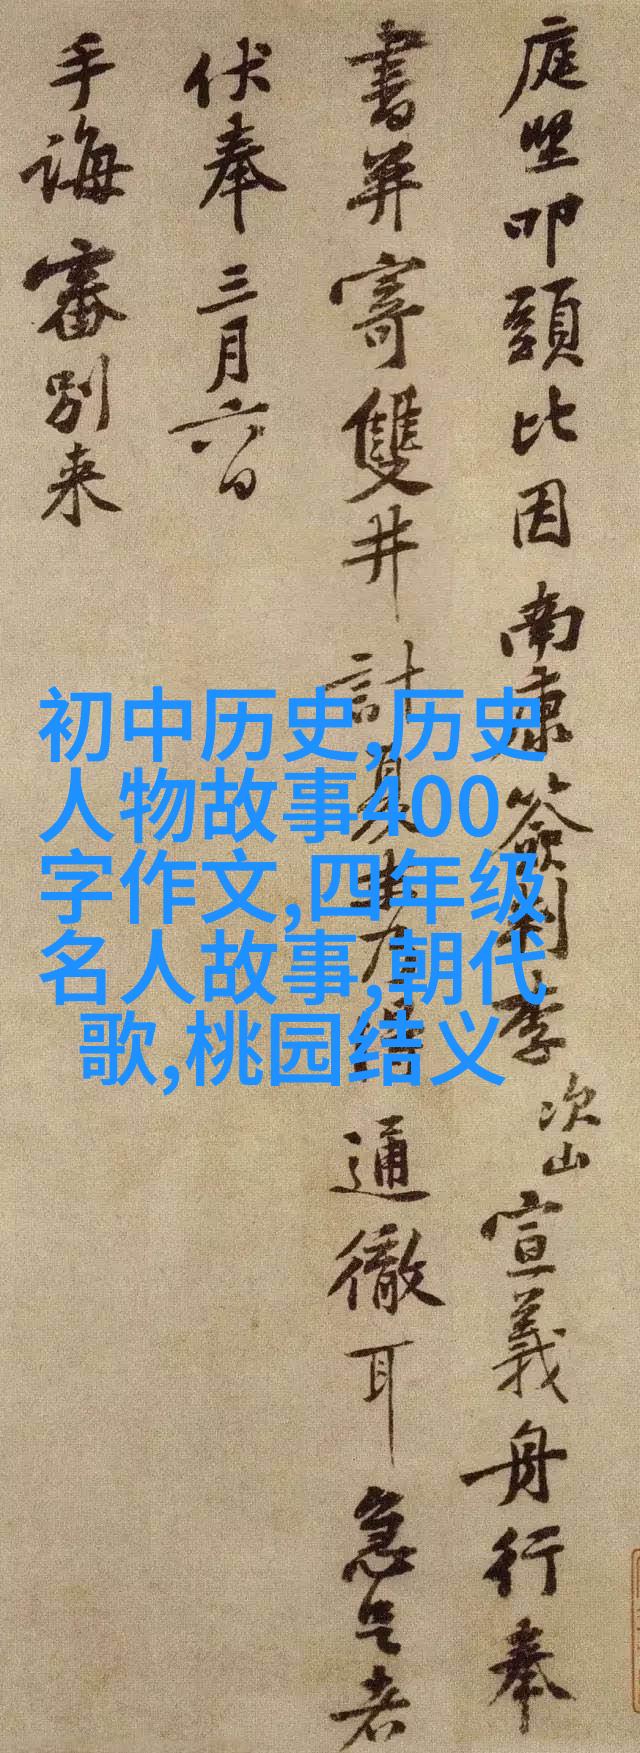 庭堅叩頭比因南康簽判李次山宣義舟行奉
書并寄雙井計夏末方得通徹耳急足者
伏奉三月六日
手誨審別来
初中历史,历史
人物故事400
字作文,四年级
名人故事,朝代
歌,桃园结义